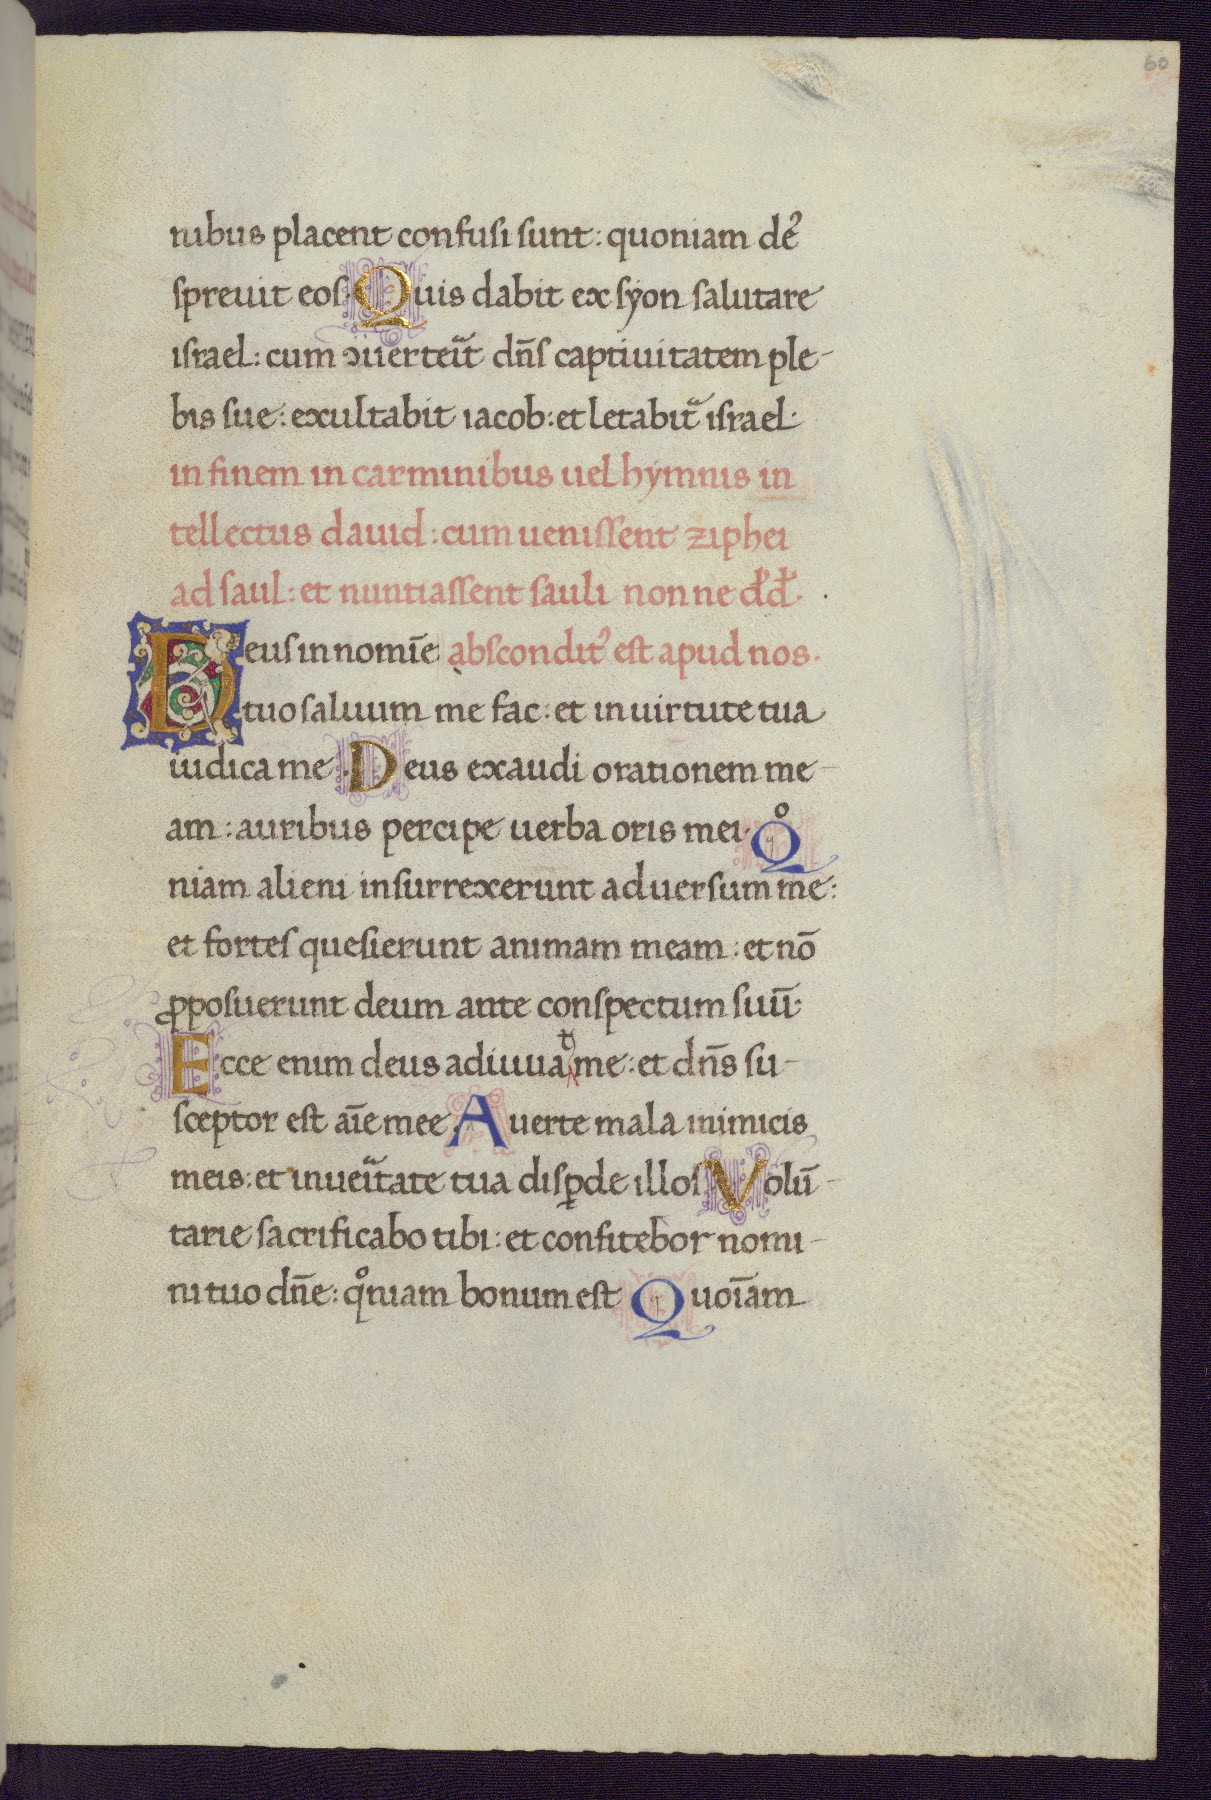 60
nibus placent confusi sunt: quoniam de᷒
spreuit eos. Quis dabit ex syon salutare
israel: cum ɔuerteit̃ dn̄s captiuitatem ple-
bis sue: exultabit iacob: et letabit̃ israel.
in finem in carminibus uel hymnis in
tellectus dauid: cum uenissent ziphei
ad saul: et nuntiassent sauli nonne dd̄.
Deus in nomīe abscondit᷒ est apud nos.
tuo saluum me fac: et in uirtute tua
iudica me. Deus exaudi orationem me-
am: auribus percipe uerba oris mei. Qͦ
niam alieni insurrexerunt aduersum me:
et fortes quesierunt animam meam: et nō
ꝓposuerunt deum ante conspectum suū.
Ecce enim deus adiuuat me: et dn̄s su-
sceptor est aīe mee. Auerte mala inimicis
meis: et in ueit̃ate tua disꝑde illos Volū-
tarie sacrificabo tibi: et confitebor nomi-
ni tuo dn̄e: qͦniam bonum est Quoīam